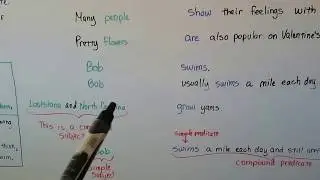 Many people show their feelings with
Pretty flowers are also popular on Valentine's
Bob swims.
Bob usually swims a mile each day
Louisiana and North grow yams.
This is a
Subject
simple predicate
Bob Swims a mile each day and still
Simple
Subject
compound predicate